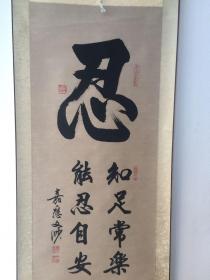 忍
知足常樂
能忍自安
嘉應